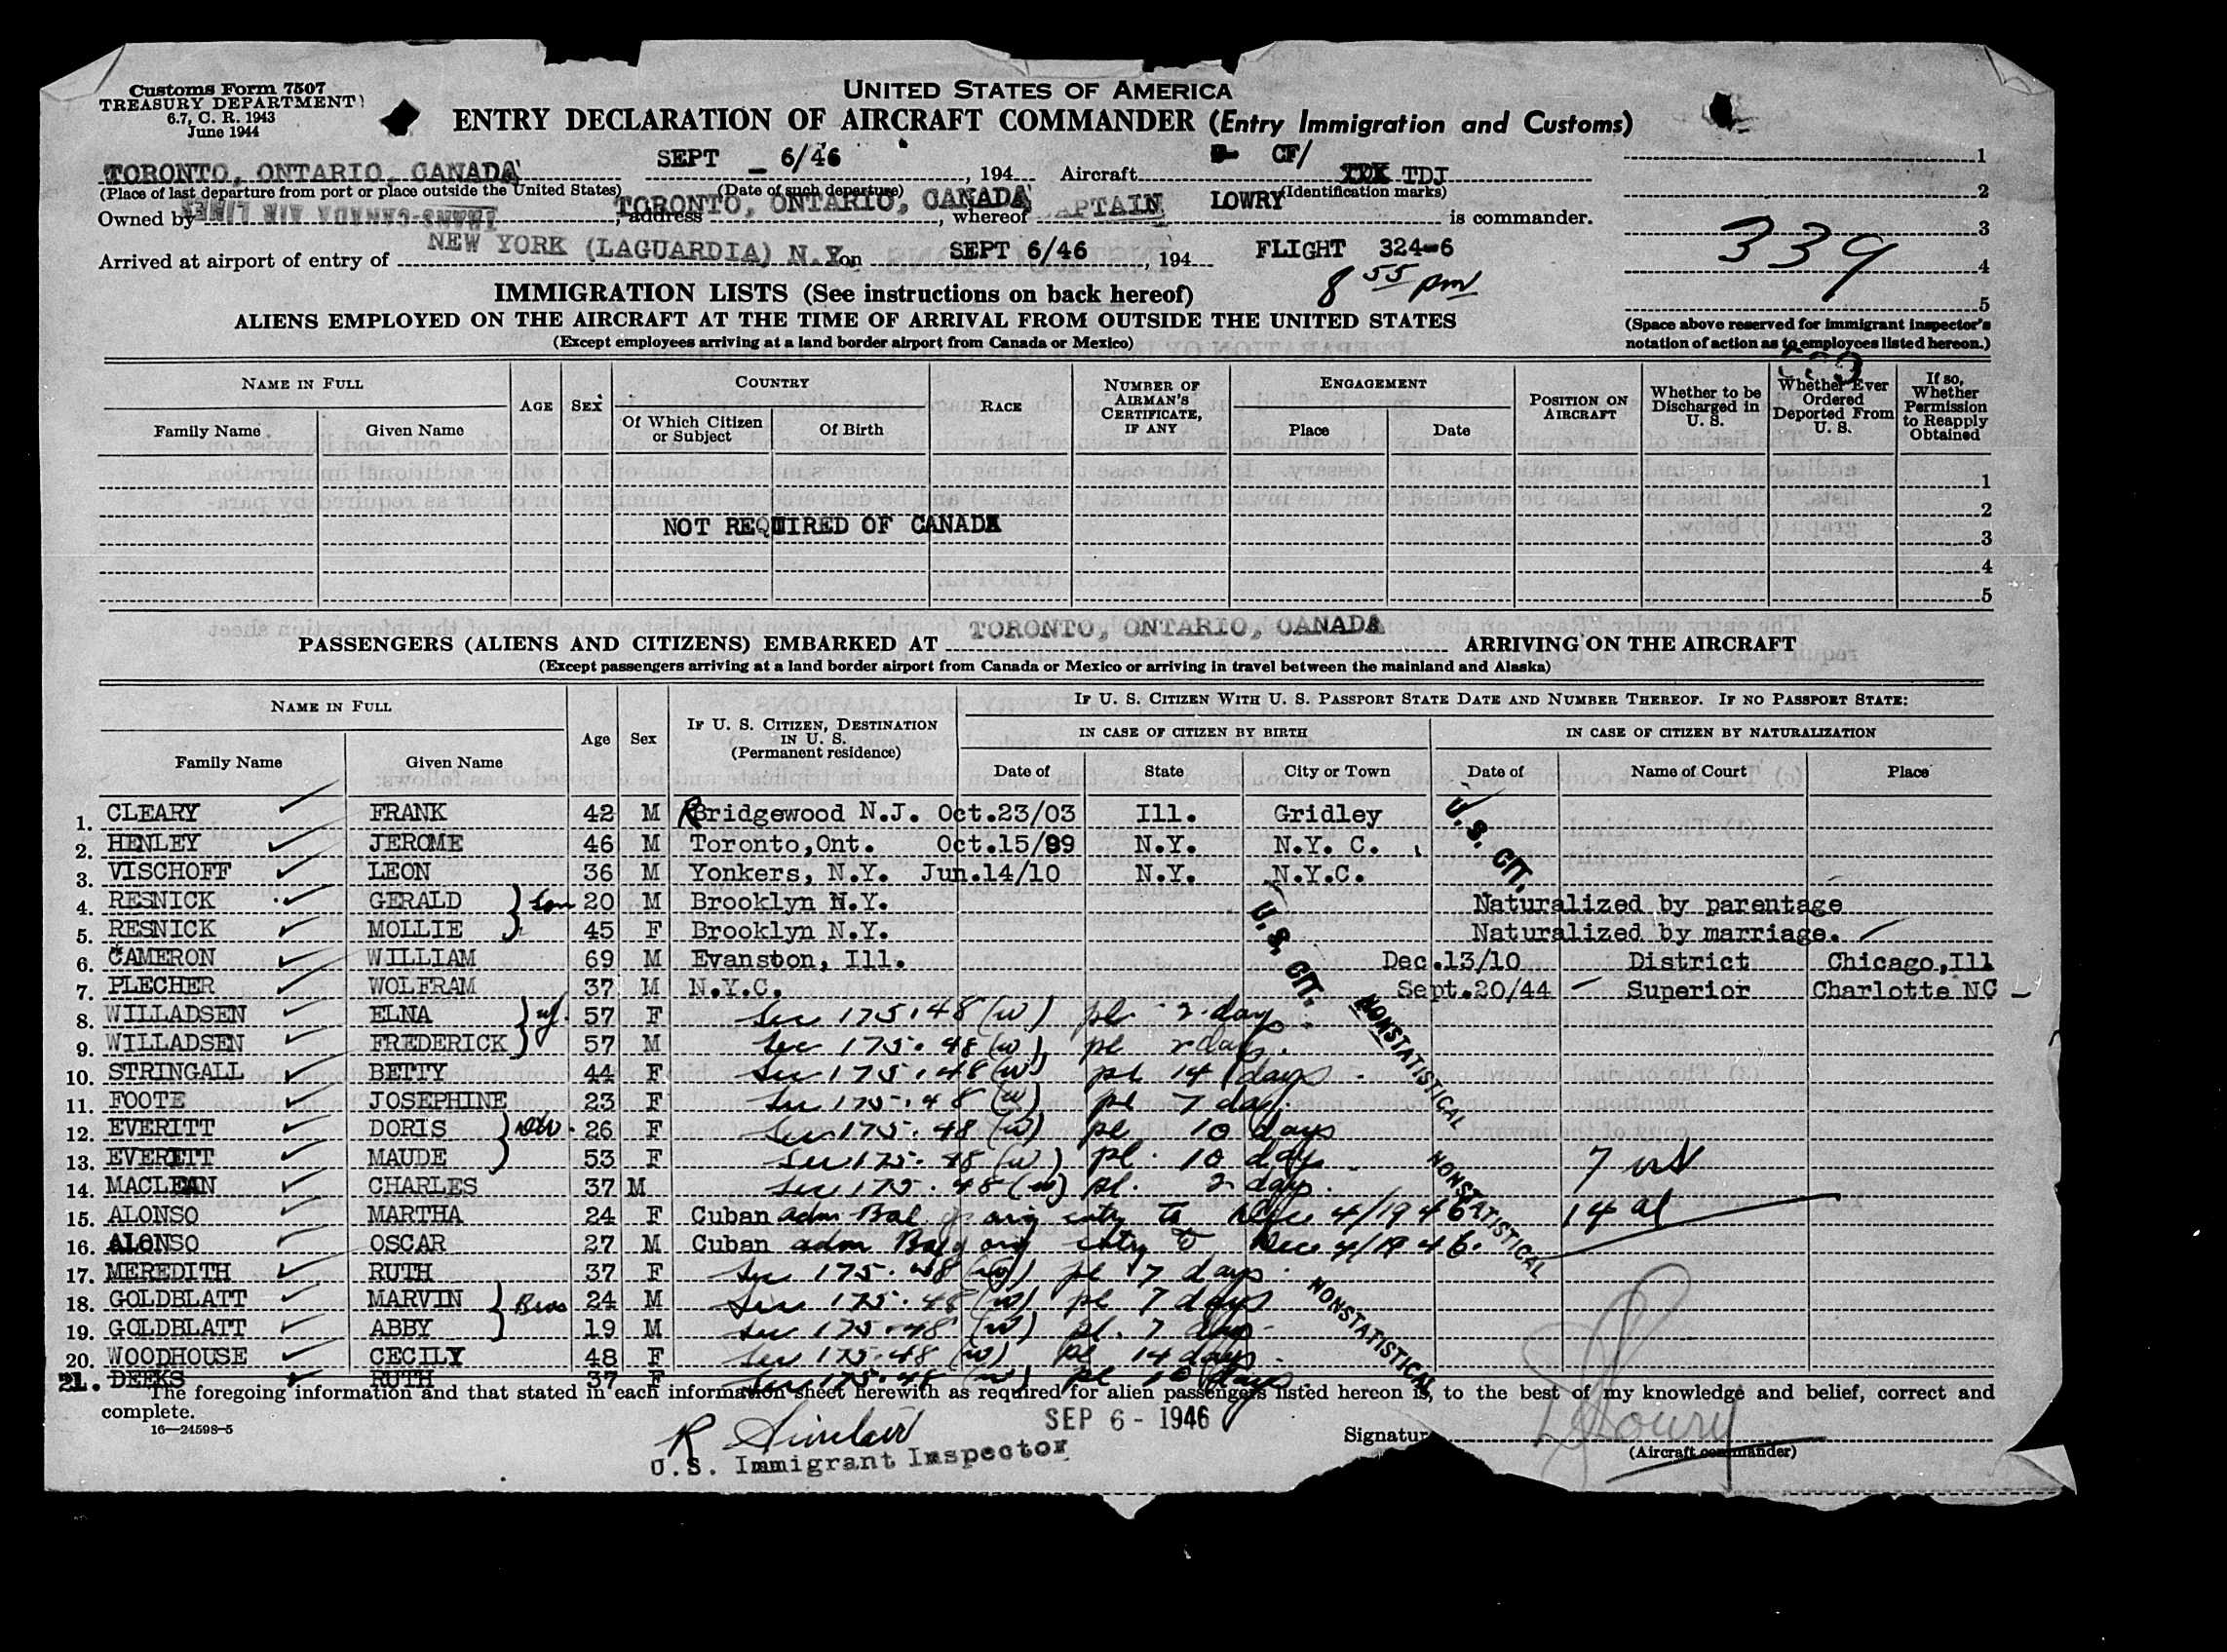 Customs Form 7507
TREASURY DEPARTMENT
6.7, C. R. 1943
June 1944
UNITED STATES OF AMERICA
ENTRY DECLARATION OF AIRCRAFT COMMANDER (Entry Immigration and Customs)
TORONTO, ONTARIO, CANADA SEPT 6/46, 194 Aircraft CF/ TDJ
(Place of last departure from port or place outside the United States) (Date of such departure) (Identification marks)
Owned by TRANS-CANADA AIR LINES, address TORONTO, ONTARIO, CANADA, whereof APTAIN LOWRY is commander.
Arrived at airport of entry of NEW YORK (LAGUARDIA) N.Y. on SEPT 6/46, 194 FLIGHT 324-6
8 55 pm
1
2
3
4
5
339
(Space above reserved for immigrant inspector's notation of action as to employees listed hereon.)
IMMIGRATION LISTS (See instructions on back hereof)
ALIENS EMPLOYED ON THE AIRCRAFT AT THE TIME OF ARRIVAL FROM OUTSIDE THE UNITED STATES
(Except employees arriving at a land border airport from Canada or Mexico)
NAME IN FULL AGE SEX COUNTRY RACE NUMBER OF AIRMAN'S CERTIFICATE, IF ANY ENGAGEMENT POSITION ON AIRCRAFT Whether to be Discharged in U. S. Whether Ever Ordered Deported From U. S. If so, Whether Permission to Reapply Obtained
Family Name Given Name Of Which Citizen or Subject Of Birth Place Date
1
2
NOT REQUIRED OF CANADA
3
4
5
PASSENGERS (ALIENS AND CITIZENS) EMBARKED AT TORONTO, ONTARIO, CANADA ARRIVING ON THE AIRCRAFT
(Except passengers arriving at a land border airport from Canada or Mexico or arriving in travel between the mainland and Alaska)
NAME IN FULL Age Sex IF U. S. CITIZEN, DESTINATION IN U. S. (Permanent residence) IF U. S. CITIZEN WITH U. S. PASSPORT STATE DATE AND NUMBER THEREOF. IF NO PASSPORT STATE:
IN CASE OF CITIZEN BY BIRTH IN CASE OF CITIZEN BY NATURALIZATION
Family Name Given Name Date of State City or Town Date of Name of Court Place
1. CLEARY FRANK 42 M Bridgewood N.J. Oct.23/03 Ill. Gridley
2. HENLEY JEROME 46 M Toronto,Ont. Oct.15/99 N.Y. N.Y. C.
3. VISCHOFF LEON 36 M Yonkers, N.Y. Jun.14/10 N.Y. N.Y.C.
U. S. CIT.
4. RESNICK GERALD } Son 20 M Brooklyn N.Y. Naturalized by parentage
5. RESNICK MOLLIE 45 F Brooklyn N.Y. Naturalized by marriage.
6. CAMERON WILLIAM 69 M Evanston, Ill. Dec.13/10 District Chicago,Ill
7. PLECHER WOLFRAM 37 M N.Y.C. Sept.20/44 Superior Charlotte NC
U. S. CIT.
8. WILLADSEN ELNA } wf. 57 F Sec 175.48 (w) pl 2 days
9. WILLADSEN FREDERICK 57 M Sec 175.48 (w) pl 2 days.
10. STRINGALL BETTY 44 F Sec 175.48 (w) pl 14 days
11. FOOTE JOSEPHINE 23 F Sec 175.48 (w) pl 7 days.
NONSTATISTICAL
12. EVERITT DORIS 26 F Sec 175.48 (w) pl 10 days
13. EVERETT MAUDE 53 F Sec 175.48 (w) pl. 10 days 7 us
14. MACLEAN CHARLES 37 M Sec 175.48 (w) pl. 2 days.
15. ALONSO MARTHA 24 F Cuban adm Bal of orig entry to Dec 4/1946 14 al
16. ALONSO OSCAR 27 M Cuban adm Bal of orig entry to Dec 4/1946.
NONSTATISTICAL
17. MEREDITH RUTH 37 F Sec 175.48 (w) pl 7 days
18. GOLDBLATT MARVIN } Bros 24 M Sec 175.48 (w) pl 7 days
19. GOLDBLATT ABBY 19 M Sec 175.48 (w) pl. 7 days
20. WOODHOUSE CECILY 48 F Sec 175.48 (w) pl 14 days
21. DEEKS RUTH 37 F Sec 175.48 (w) pl 10 days
NONSTATISTICAL
The foregoing information and that stated in each information sheet herewith as required for alien passengers listed hereon is, to the best of my knowledge and belief, correct and
complete.
16—24598-5
R Sinclair SEP 6 - 1946
U.S. Immigrant Inspector
Signatur Lowry
(Aircraft commander)